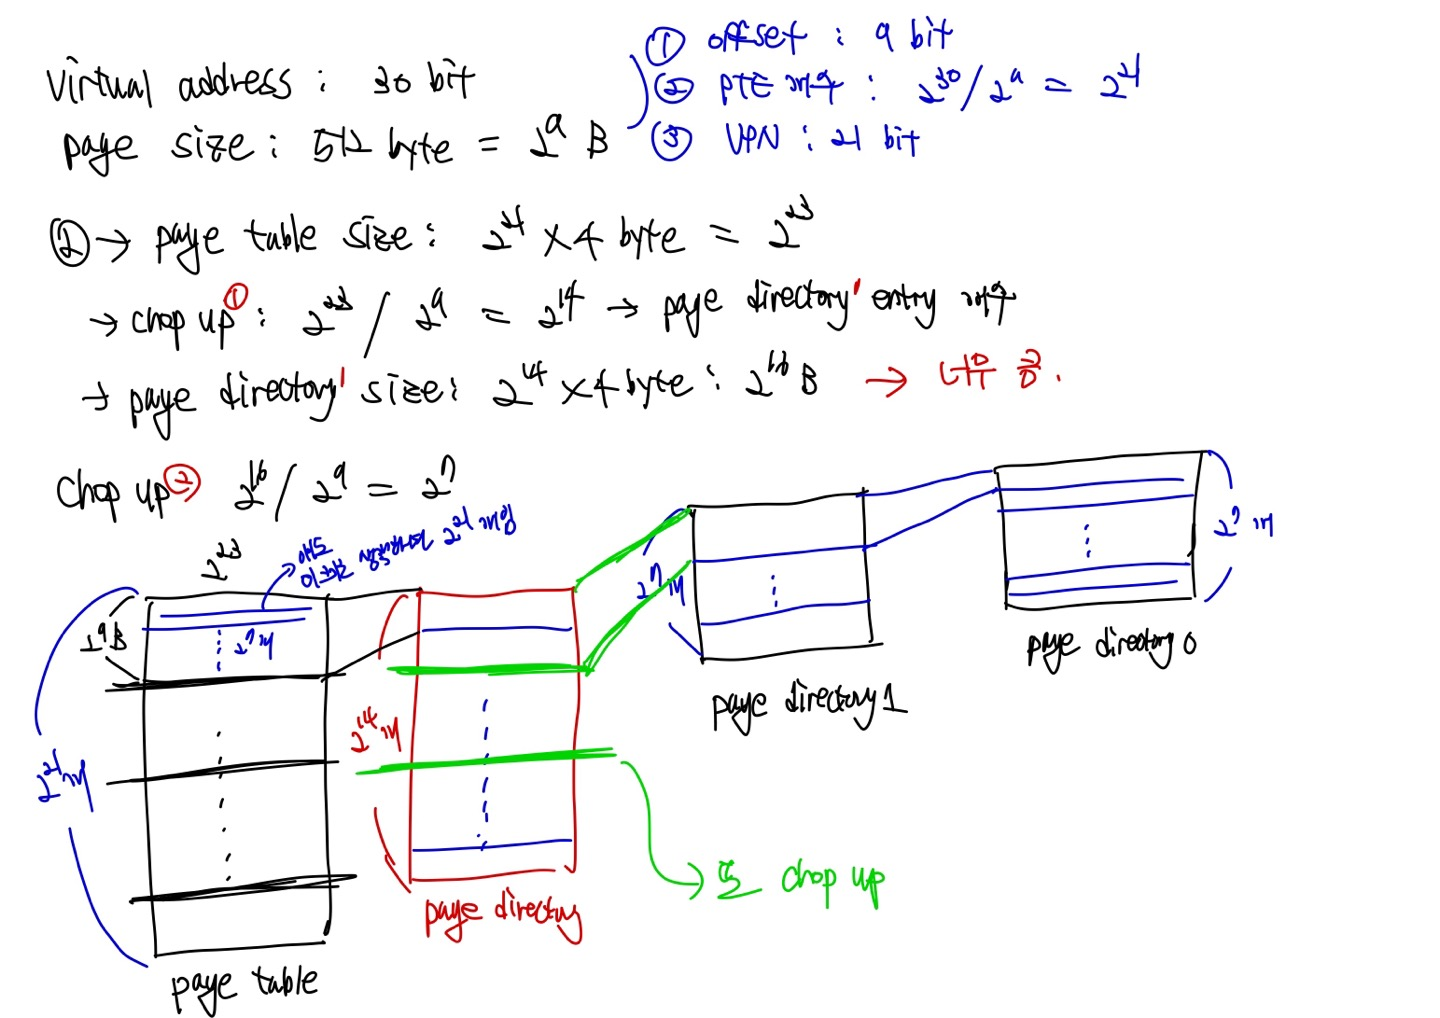 virtual address : 30 bit
page size : 512 byte = 2^9 B
① offset : 9 bit
② PTE 개수 : 2^30 / 2^9 = 2^21
③ VPN : 21 bit
② → page table size : 2^21 × 4 byte = 2^23
→ chop up① : 2^23 / 2^9 = 2^14 → page directory' entry 개수
→ page directory' size : 2^14 × 4 byte : 2^16 B → 너무 큼.
chop up② 2^16 / 2^9 = 2^7
2^23
2^21개임
2^9 B
2^7개
2^21개
page table
2^14개
page directory
또 chop up
2^7개
page directory 1
2^7개
page directory 0